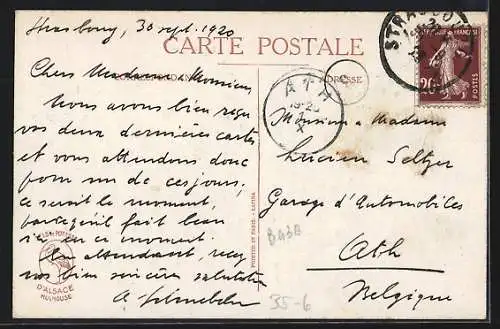 Strasbourg, 30 sept. 1920
CARTE POSTALE
CORRESPONDANCE
ADRESSE
Cher Madame & Monsieur,
Nous avons bien reçu
vos deux dernières cartes
et vous attendons donc
pour un de ces jours;
ce serait le moment,
parce qu'il fait beau
ici en ce moment.
En attendant, recevez
nos bien sincères salutations
STRASBOURG
RÉPUBLIQUE FRANÇAISE
20c
POSTES
ATH
19-20
X
Monsieur & Madame
Lucien Seltzer
Garage d'Automobiles
Ath
Belgique
B43B
35-6
D'ALSACE
MULHOUSE